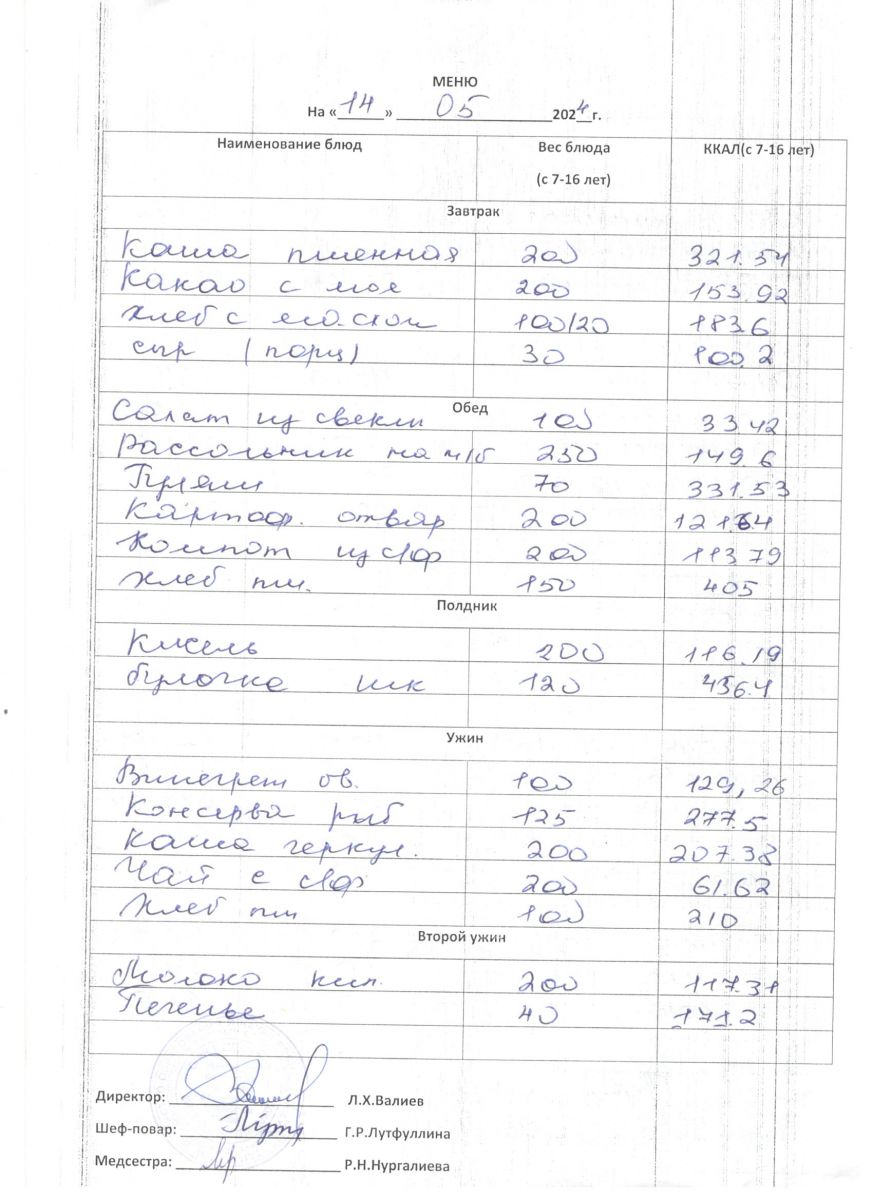 МЕНЮ
На «14» 05 2024г.
Наименование блюд Вес блюда (с 7-16 лет) ККАЛ(с 7-16 лет)
Завтрак
Каша пшенная 200 321.54
Какао с мол 200 153.92
Хлеб с 100/20 183.6
сыр (порц) 30 100.2
Обед
Салат из свеклы 100 33.42
Рассольник на м/б 250 149.6
Гуляш 70 331.53
Картоф. отвар 200 121.64
Компот из с/ф 200 113.79
Хлеб пш. 150 405
Полдник
Кисель 200 116.19
булочка шк 120 436.4
Ужин
Винегрет ов. 100 129,26
Консерва рыб 125 277.5
Каша геркул. 200 207.38
Чай с 200 61.62
Хлеб пш 100 210
Второй ужин
Молоко кип. 200 117.31
Печенье 40 171.2
Директор: Л.Х.Валиев
Шеф-повар: Г.Р.Лутфуллина
Медсестра: Р.Н.Нургалиева